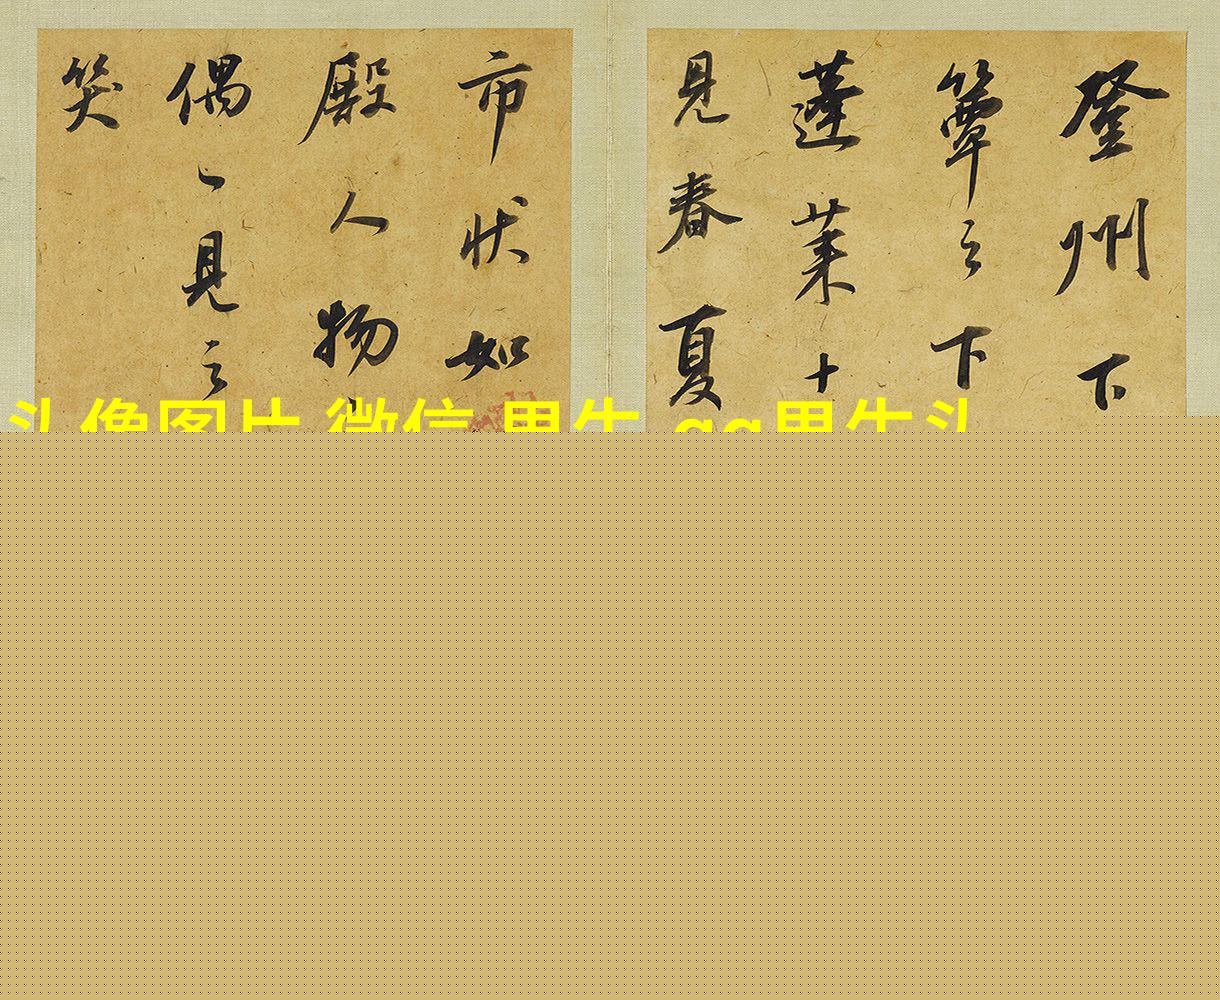 登州下
簟之下
蓬莱十
見春夏
市状如
殿人物
偶見之
笑
头像图片 微信 男生 qq男生头